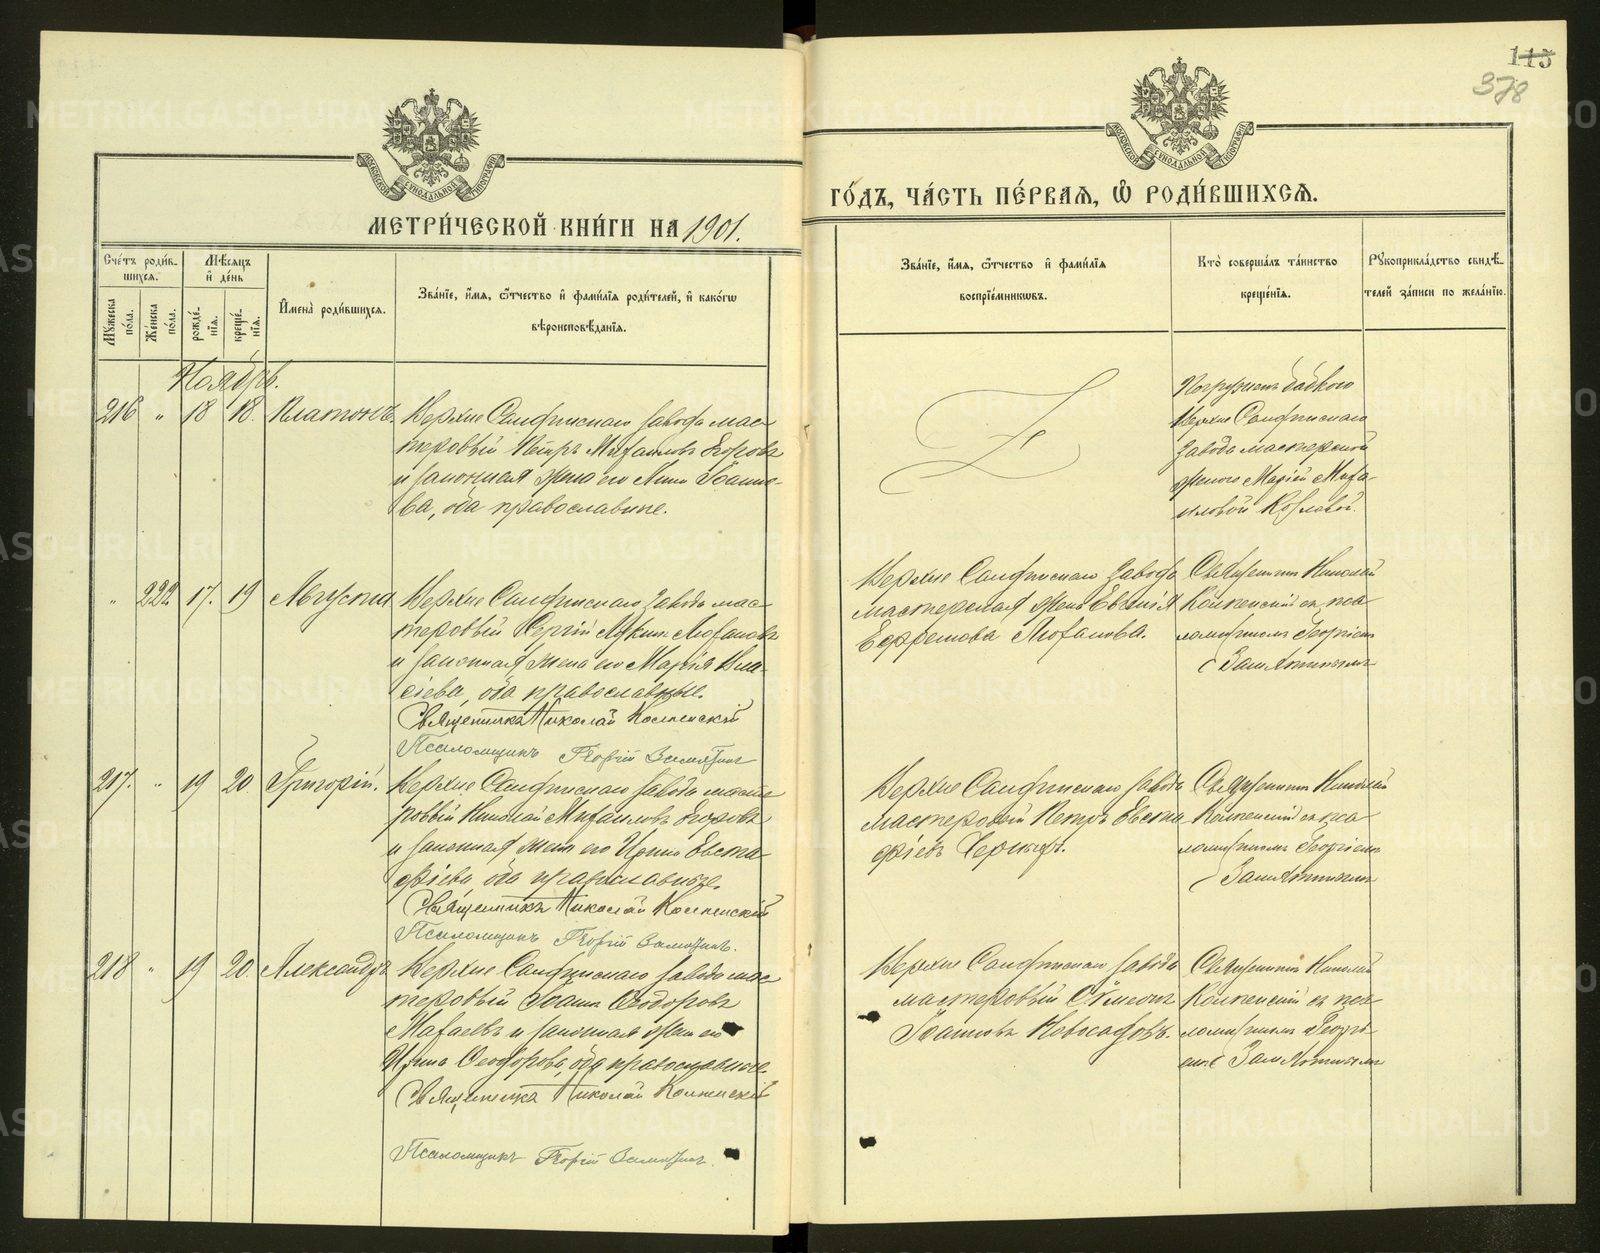 115
378
МОСКОВСКОЙ СѴНОДАЛЬНОЙ ТИПОГРАФІИ
МОСКОВСКОЙ СѴНОДАЛЬНОЙ ТИПОГРАФІИ
МЕТРИ́ЧЕСКОЙ КНИ́ГИ НА 1901.
ГО́ДЪ, ЧА́СТЬ ПЕ́РВАЯ, Ѽ РОДИ́ВШИХСЯ.
Сче́тъ роди́в-
шихся.
Мꙋ́жеска по́ла.
Же́нска по́ла.
Мѣ́сяцъ
и҆ де́нь
рожде́-
нія.
креще́-
нія.
И҆мена̀ роди́вшихся.
Зва́ніе, и҆́мя, ѻ҆́тчество и҆ фами́лія роди́телей, и҆ како́гѡ
вѣроисповѣ́данія.
Зва́ніе, и҆́мя, ѻ҆́тчество и҆ фами́лія
воспріе́мникѡвъ.
Кто̀ соверша́лъ та́инство
креще́нія.
Рꙋкоприкла́дство свидѣ́-
телей за́писи по жела́нію.
Ноябрь.
216 „ 18 18. Платонъ.
Верхне Салдинскаго завода мас-
теровый Петръ Михаиловъ Егоровъ
и законная жена его Анна Іоанно-
ва, оба православные.
Погруженъ бабкою
Верхне Салдинскаго
завода мастерской
женою Маріей Миха-
иловой Козловой.
„ 222 17. 19 Августа
Верхне Салдинскаго завода мас-
теровый Сергій Лукинъ Лоханов
и законная жена его Марія Вла-
сіева, оба православные.
Священникъ Николай Колпенскій
Псаломщикъ Георгій Замятинъ
Верхне Салдинскаго завода
мастерская жена Евгенія
Ефремова Лоханова.
Священникъ Николай
Колпенскій съ пса-
ломщикомъ Георгіемъ
Замятинымъ
217. „ 19 20 Григорій.
Верхне Салдинскаго завода масте
ровый Николай Михаиловъ Егоровъ
и законная жена его Ирина Евста-
фіева оба православные.
Священникъ Николай Колпенскій
Псаломщикъ Георгій Замятинъ.
Верхне Салдинскаго завода
мастеровой Петръ Евста
фіевъ Черныхъ.
Священникъ Николай
Колпенскій съ пса-
ломщикомъ Георгіемъ
Замятинымъ
218 „ 19 20. Александръ
Верхне Салдинскаго завода мас
теровый Іоаннъ Ѳеодоровъ
и законная жена его
Ирина Ѳеодорова, оба православные.
Священникъ Николай Колпенскій
Псаломщикъ Георгій Замятинъ.
Верхне Салдинскаго завода
мастеровый Сѵмеонъ
Іоанновъ
Священникъ Николай
Колпенскій съ пса-
ломщикомъ Георгі-
емъ Замятинымъ
METRIKI.GASO-URAL.RU